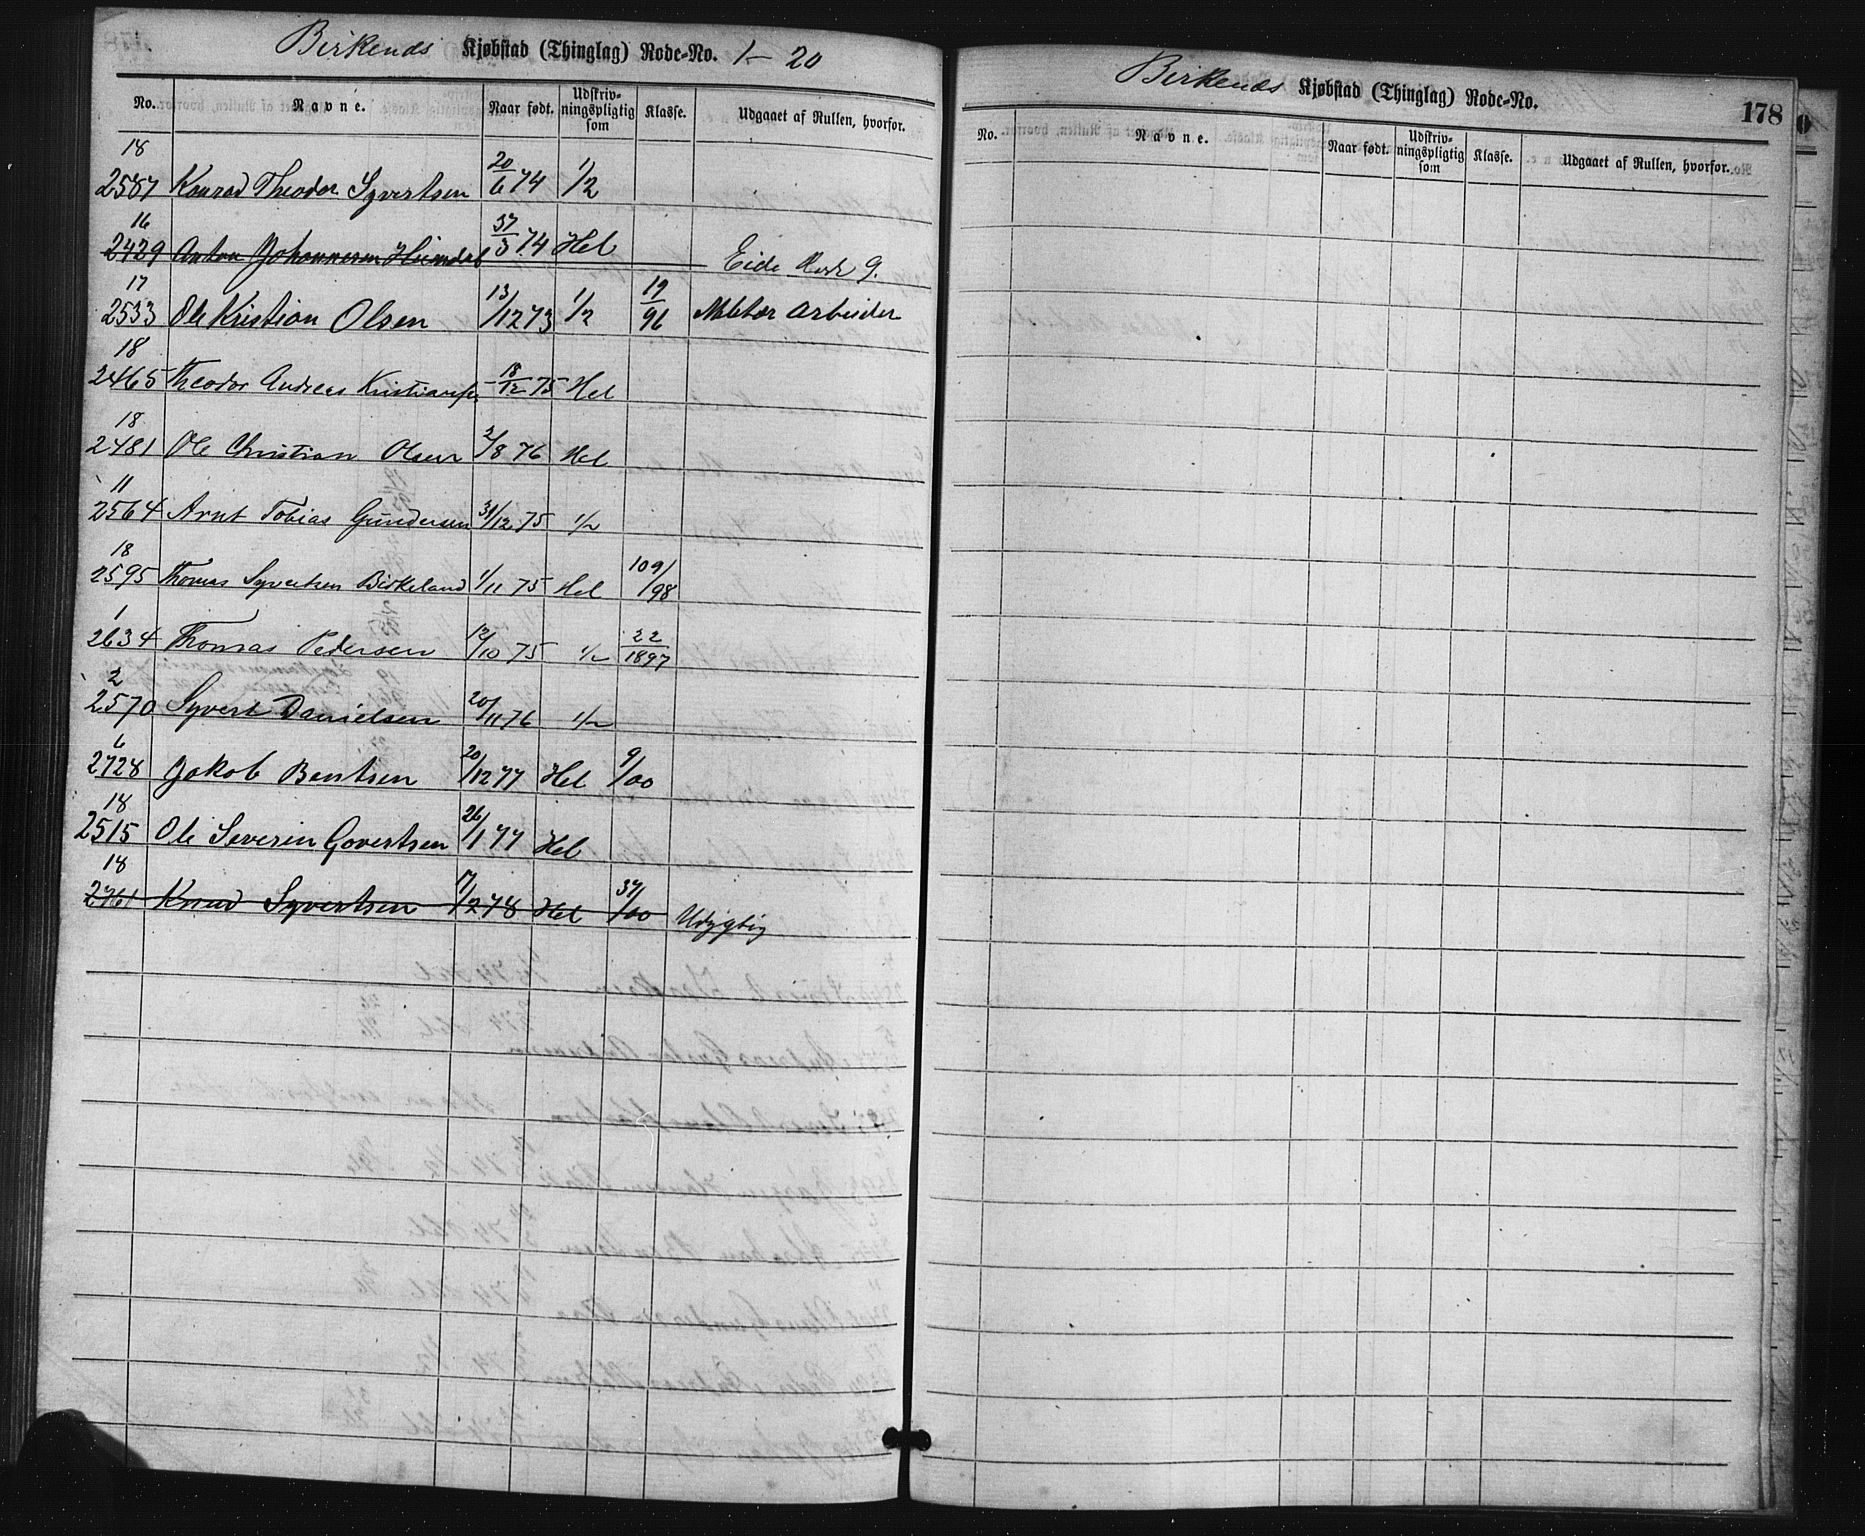 Birkenæs Kjøbstad (Thinglag) Rode-No. 1-20
No. Navne. Naar født. Udskriv-ningspligtig som Klasse. Udgaaet af Rullen, hvorfor.
18
2587 Konrad Theodor Syvertsen 20/6 74 1/2
16
2429 Anton Johannesen Heimdal 37/3 74 Hel Eide Rode 9.
17
2533 Ole Kristian Olsen 13/12 73 1/2 19/96 Militær Arbeider
18
2465 Theodor Andreas Kristiansen 18/12 75 Hel
18
2481 Ole Christian Olsen 2/8 76 Hel
11
2564 Arnt Tobias Gundersen 31/12 75 1/2
18
2595 Thomas Syvertsen Birkeland 1/11 75 Hel 109/98
1
2634 Thomas Pedersen 12/10 75 1/2 22/1897
2
2570 Syvert Danielsen 20/11 76 1/2
6
2728 Jakob Bentsen 20/12 77 Hel 9/00
18
2515 Ole Severin Govertsen 26/1 77 Hel
18
2761 Knud Syvertsen 17/2 78 Hel 37/00 Udygtig
Birkenæs Kjøbstad (Thinglag) Rode-No.
178
No. Navne. Naar født. Udskriv-ningspligtig som Klasse. Udgaaet af Rullen, hvorfor.